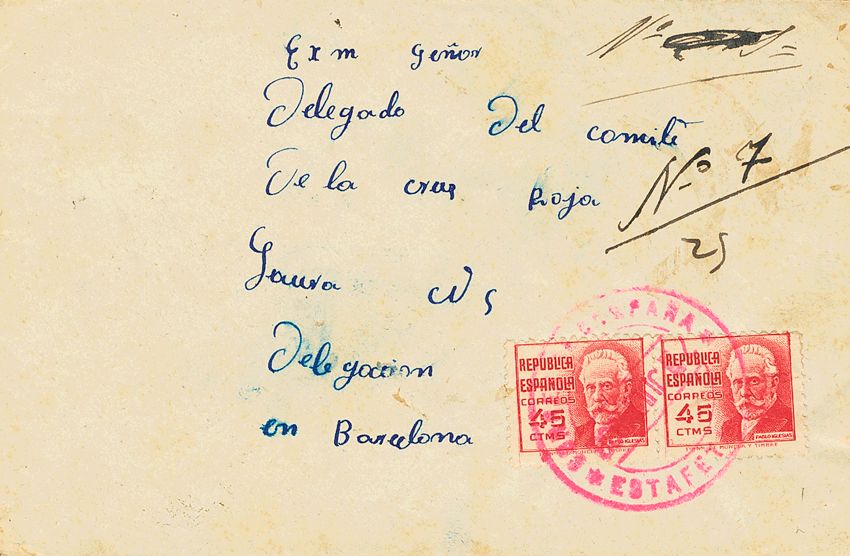 Nº
Exm Señor
Delegado Del comité
De la crus Roja
Nº 7
25
Laura Nº 5
Delegacion
en Barcelona
CAMPAÑA
ESTAFETA
REPUBLICA
ESPAÑOLA
CORREOS
45
CTMS
PABLO IGLESIAS
REPUBLICA
ESPAÑOLA
CORREOS
45
CTMS
PABLO IGLESIAS